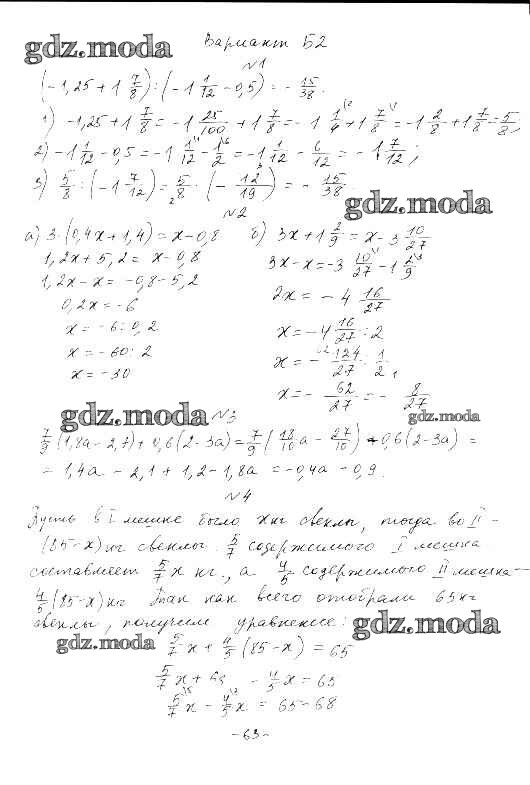 gdz.moda
Вариант Б2
№1
(-1,25 + 1 7/8) : (-1 1/12 - 0,5) = - 15/38.
1) -1,25 + 1 7/8 = -1 25/100 + 1 7/8 = -1 1/4 + 1 7/8 = -1 2/8 + 1 7/8 = 5/8;
2) -1 1/12 - 0,5 = -1 1/12 - 1/2 = -1 1/12 - 6/12 = -1 7/12;
3) 5/8 : (-1 7/12) = 5/8 · (- 12/19) = - 15/38.
gdz.moda
№2
а) 3·(0,4x + 1,4) = x - 0,8
1,2x + 5,2 = x - 0,8
1,2x - x = -0,8 - 5,2
0,2x = -6
x = -6 : 0,2
x = -60 : 2
x = -30
б) 3x + 1 2/9 = x - 3 10/27
3x - x = -3 10/27 - 1 2/9
2x = -4 16/27
x = -4 16/27 : 2
x = - 124/27 · 1/2,
x = - 62/27 = - 8/27
gdz.moda
gdz.moda
№3
7/9 (1,8a - 2,7) + 0,6 (2 - 3a) = 7/9 (18/10 a - 27/10) + 0,6 (2 - 3a) =
= 1,4a - 2,1 + 1,2 - 1,8a = -0,4a - 0,9.
№4
Пусть в I мешке было x кг свеклы, тогда во II -
(85-x) кг свеклы. 5/7 содержимого I мешка
составляет 5/7 x кг, а 4/5 содержимого II мешка -
4/5 (85-x) кг. Так как всего отобрали 65 кг
свеклы, получим уравнение:
gdz.moda
gdz.moda
5/7 x + 4/5 (85 - x) = 65
5/7 x + 68 - 4/5 x = 65
5/7 x - 4/5 x = 65 - 68
- 63 -